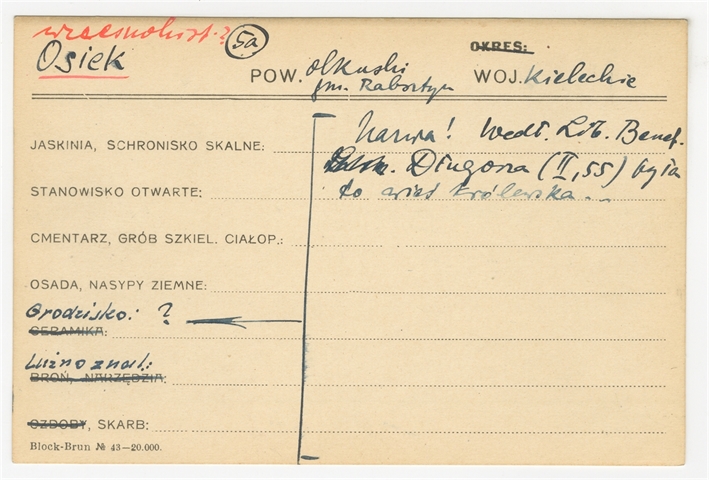 wczesnohist.?
Osiek
5a
OKRES:
POW. olkuski WOJ. Kieleckie
gm. Rabsztyn
JASKINIA, SCHRONISKO SKALNE:
Nazwa! Wedł. Lib. Benef.
Długosza (II, 55) była
STANOWISKO OTWARTE:
to wieś królewska...
CMENTARZ, GRÓB SZKIEL. CIAŁOP.:
OSADA, NASYPY ZIEMNE:
Grodzisko: ?
CERAMIKA:
Luźno znal.:
BROŃ, NARZĘDZIA:
OZDOBY, SKARB:
Block-Brun № 43—20.000.